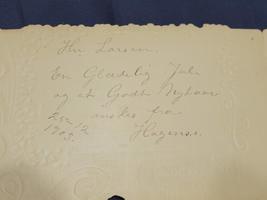 Hr. Larsen.
En Glædelig Jul
og et Godt Nytaar
ønskes fra
Hagens.
1903.